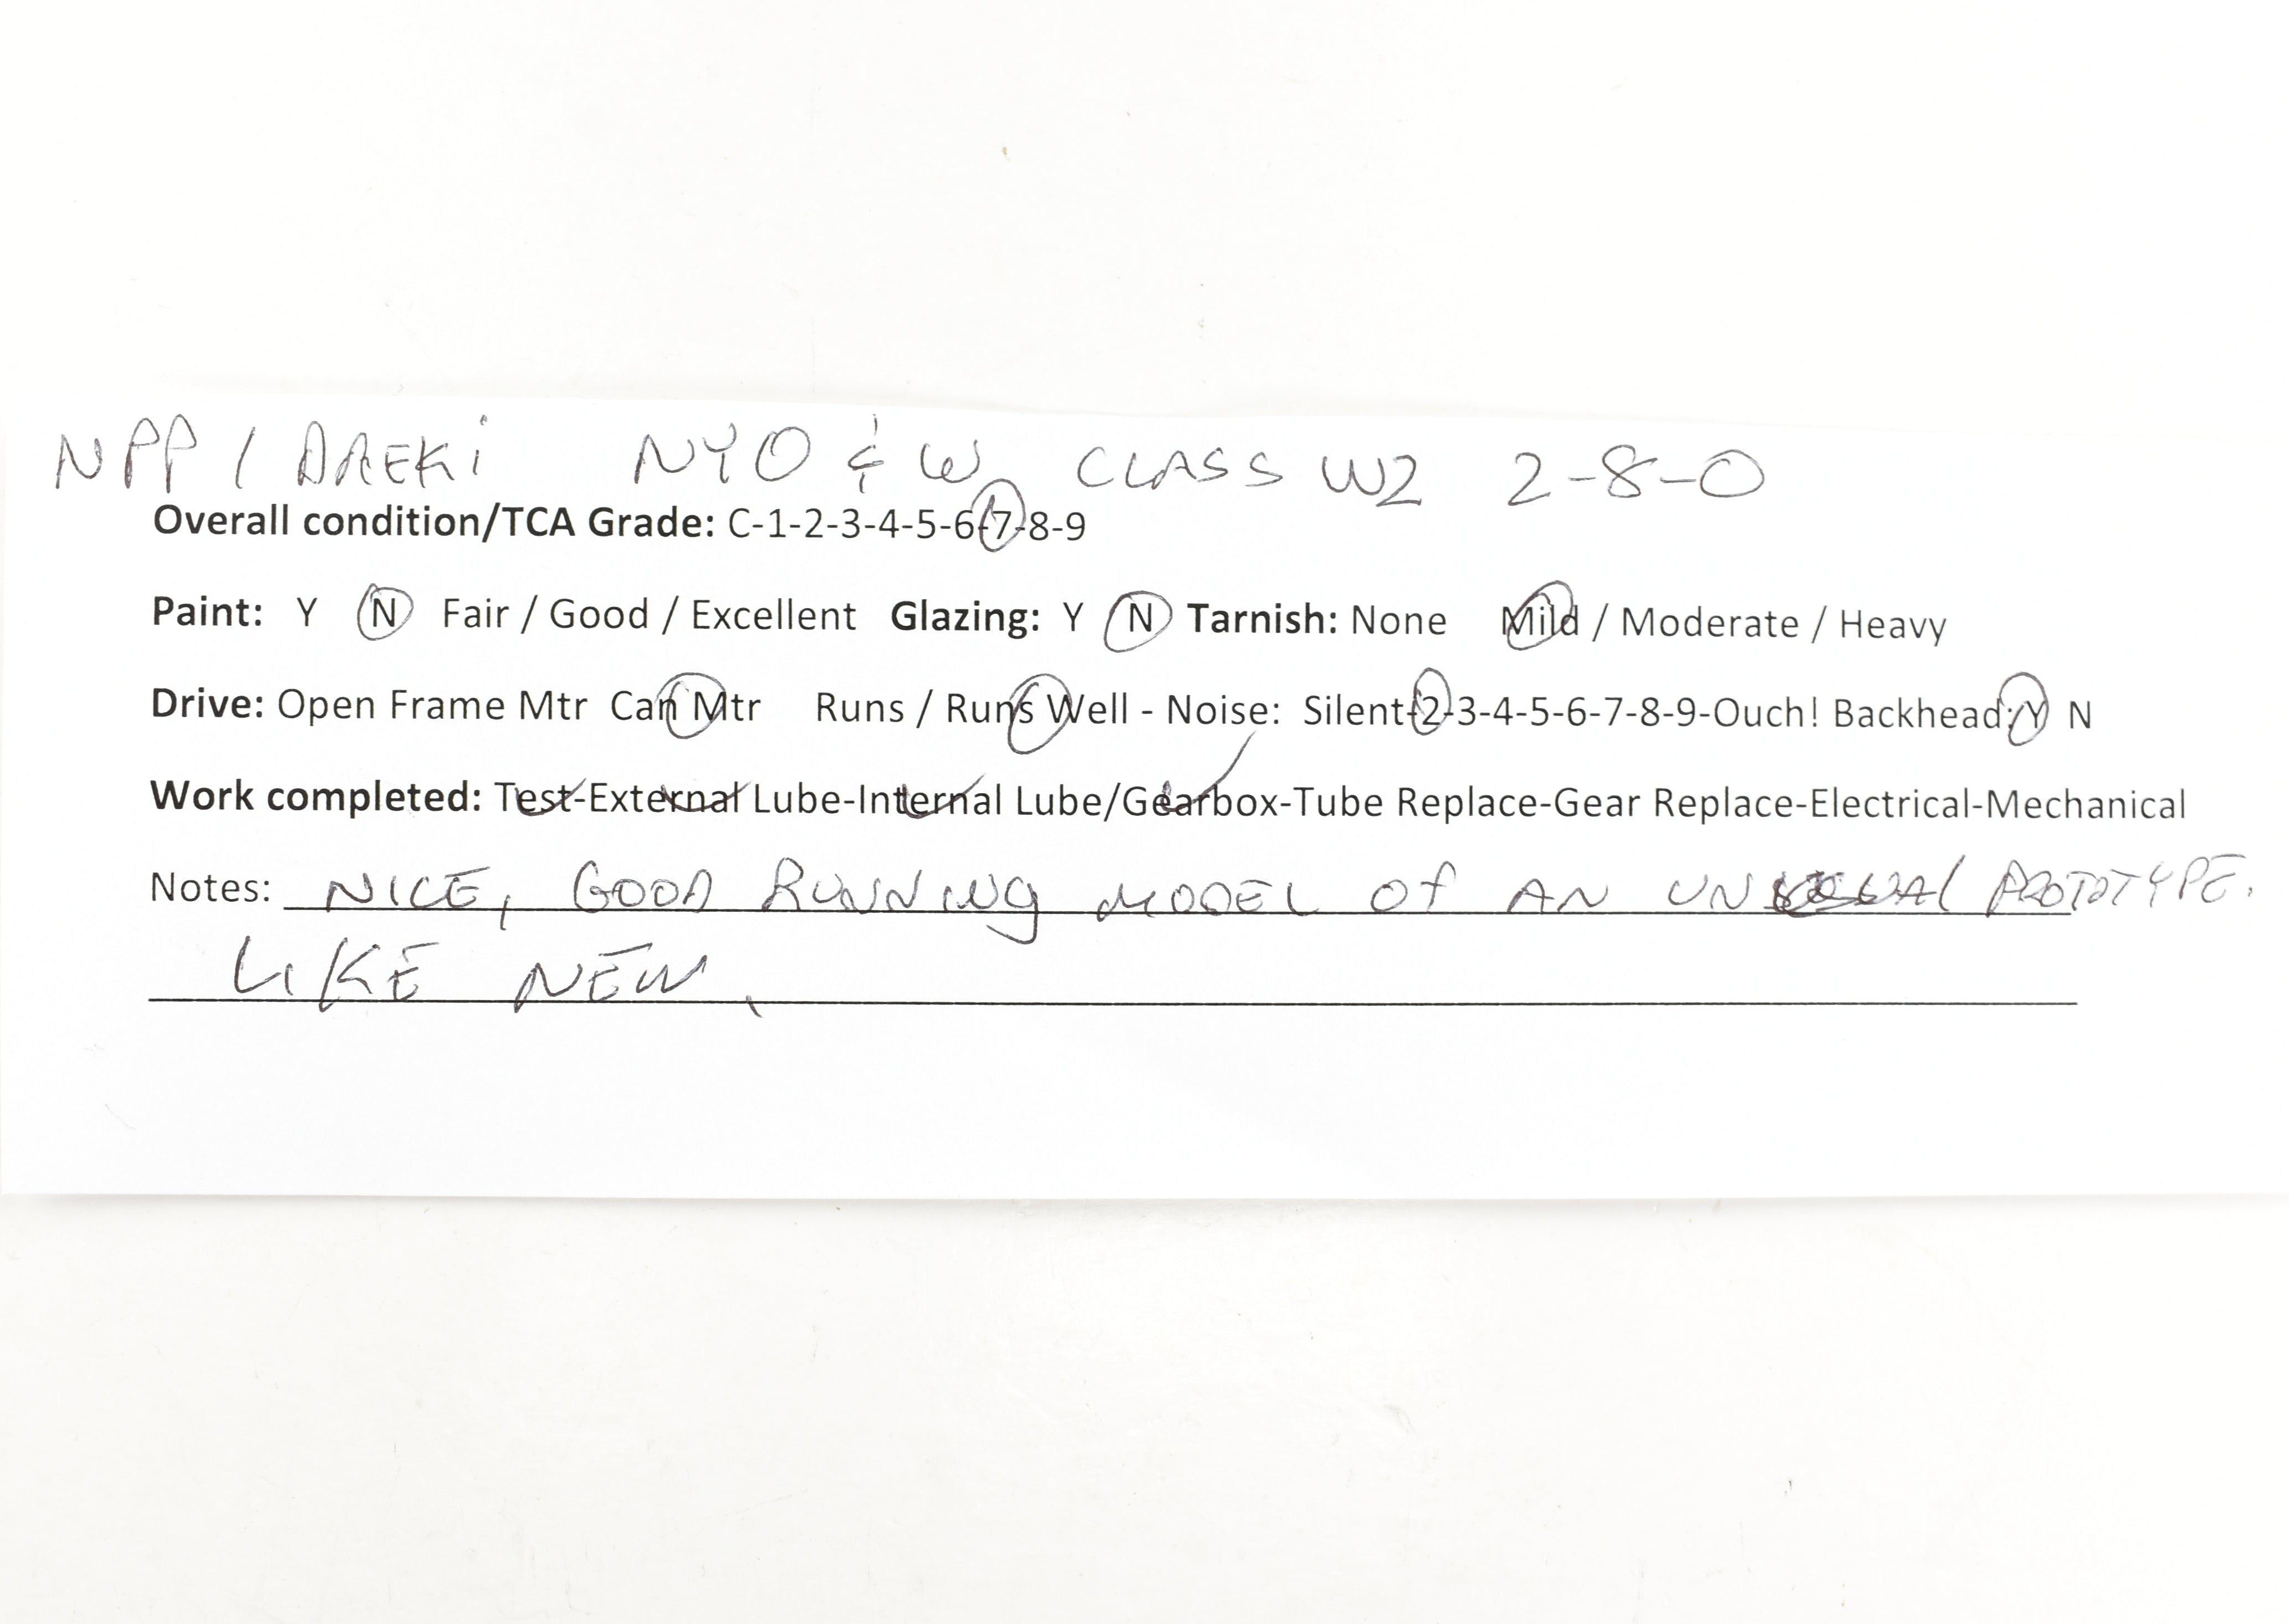 NPP / DAEKi NYO & W CLASS W2 2-8-0
Overall condition/TCA Grade: C-1-2-3-4-5-6-7-8-9
Paint: Y N Fair / Good / Excellent Glazing: Y N Tarnish: None Mild / Moderate / Heavy
Drive: Open Frame Mtr Can Mtr Runs / Runs Well - Noise: Silent-2-3-4-5-6-7-8-9-Ouch! Backhead: Y N
Work completed: Test-External Lube-Internal Lube/Gearbox-Tube Replace-Gear Replace-Electrical-Mechanical
Notes: NICE, GOOD RUNNING MODEL Of AN UNUSUAL PROTOTYPE.
LIKE NEW.